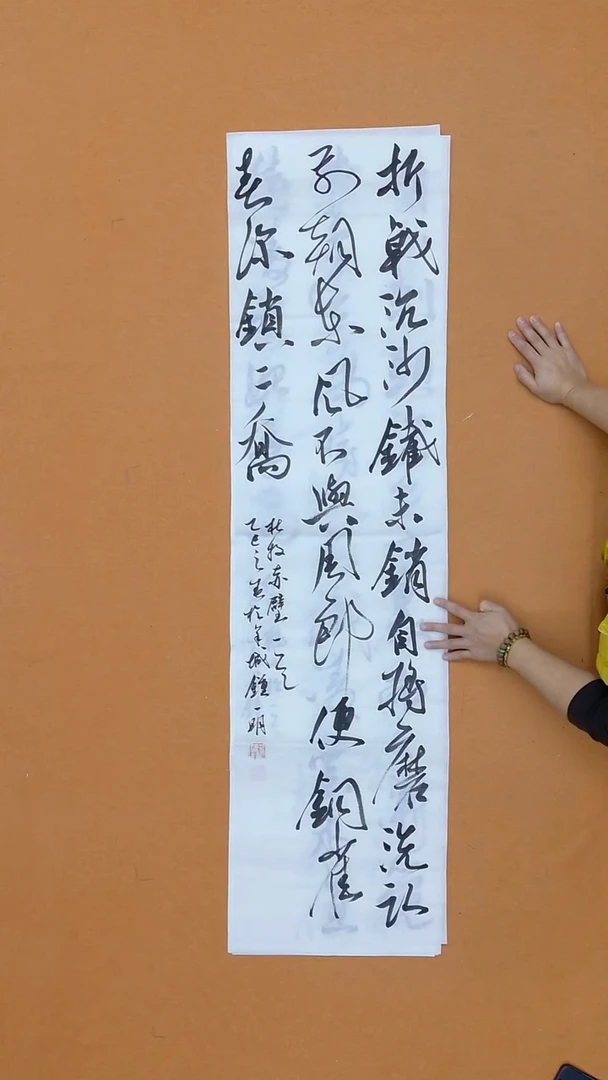 折戟沉沙鐵未銷自將磨洗認
前朝東風不與周郎便銅雀
春深鎖二喬
杜牧赤壁一
乙巳之春於羊城鍾一明